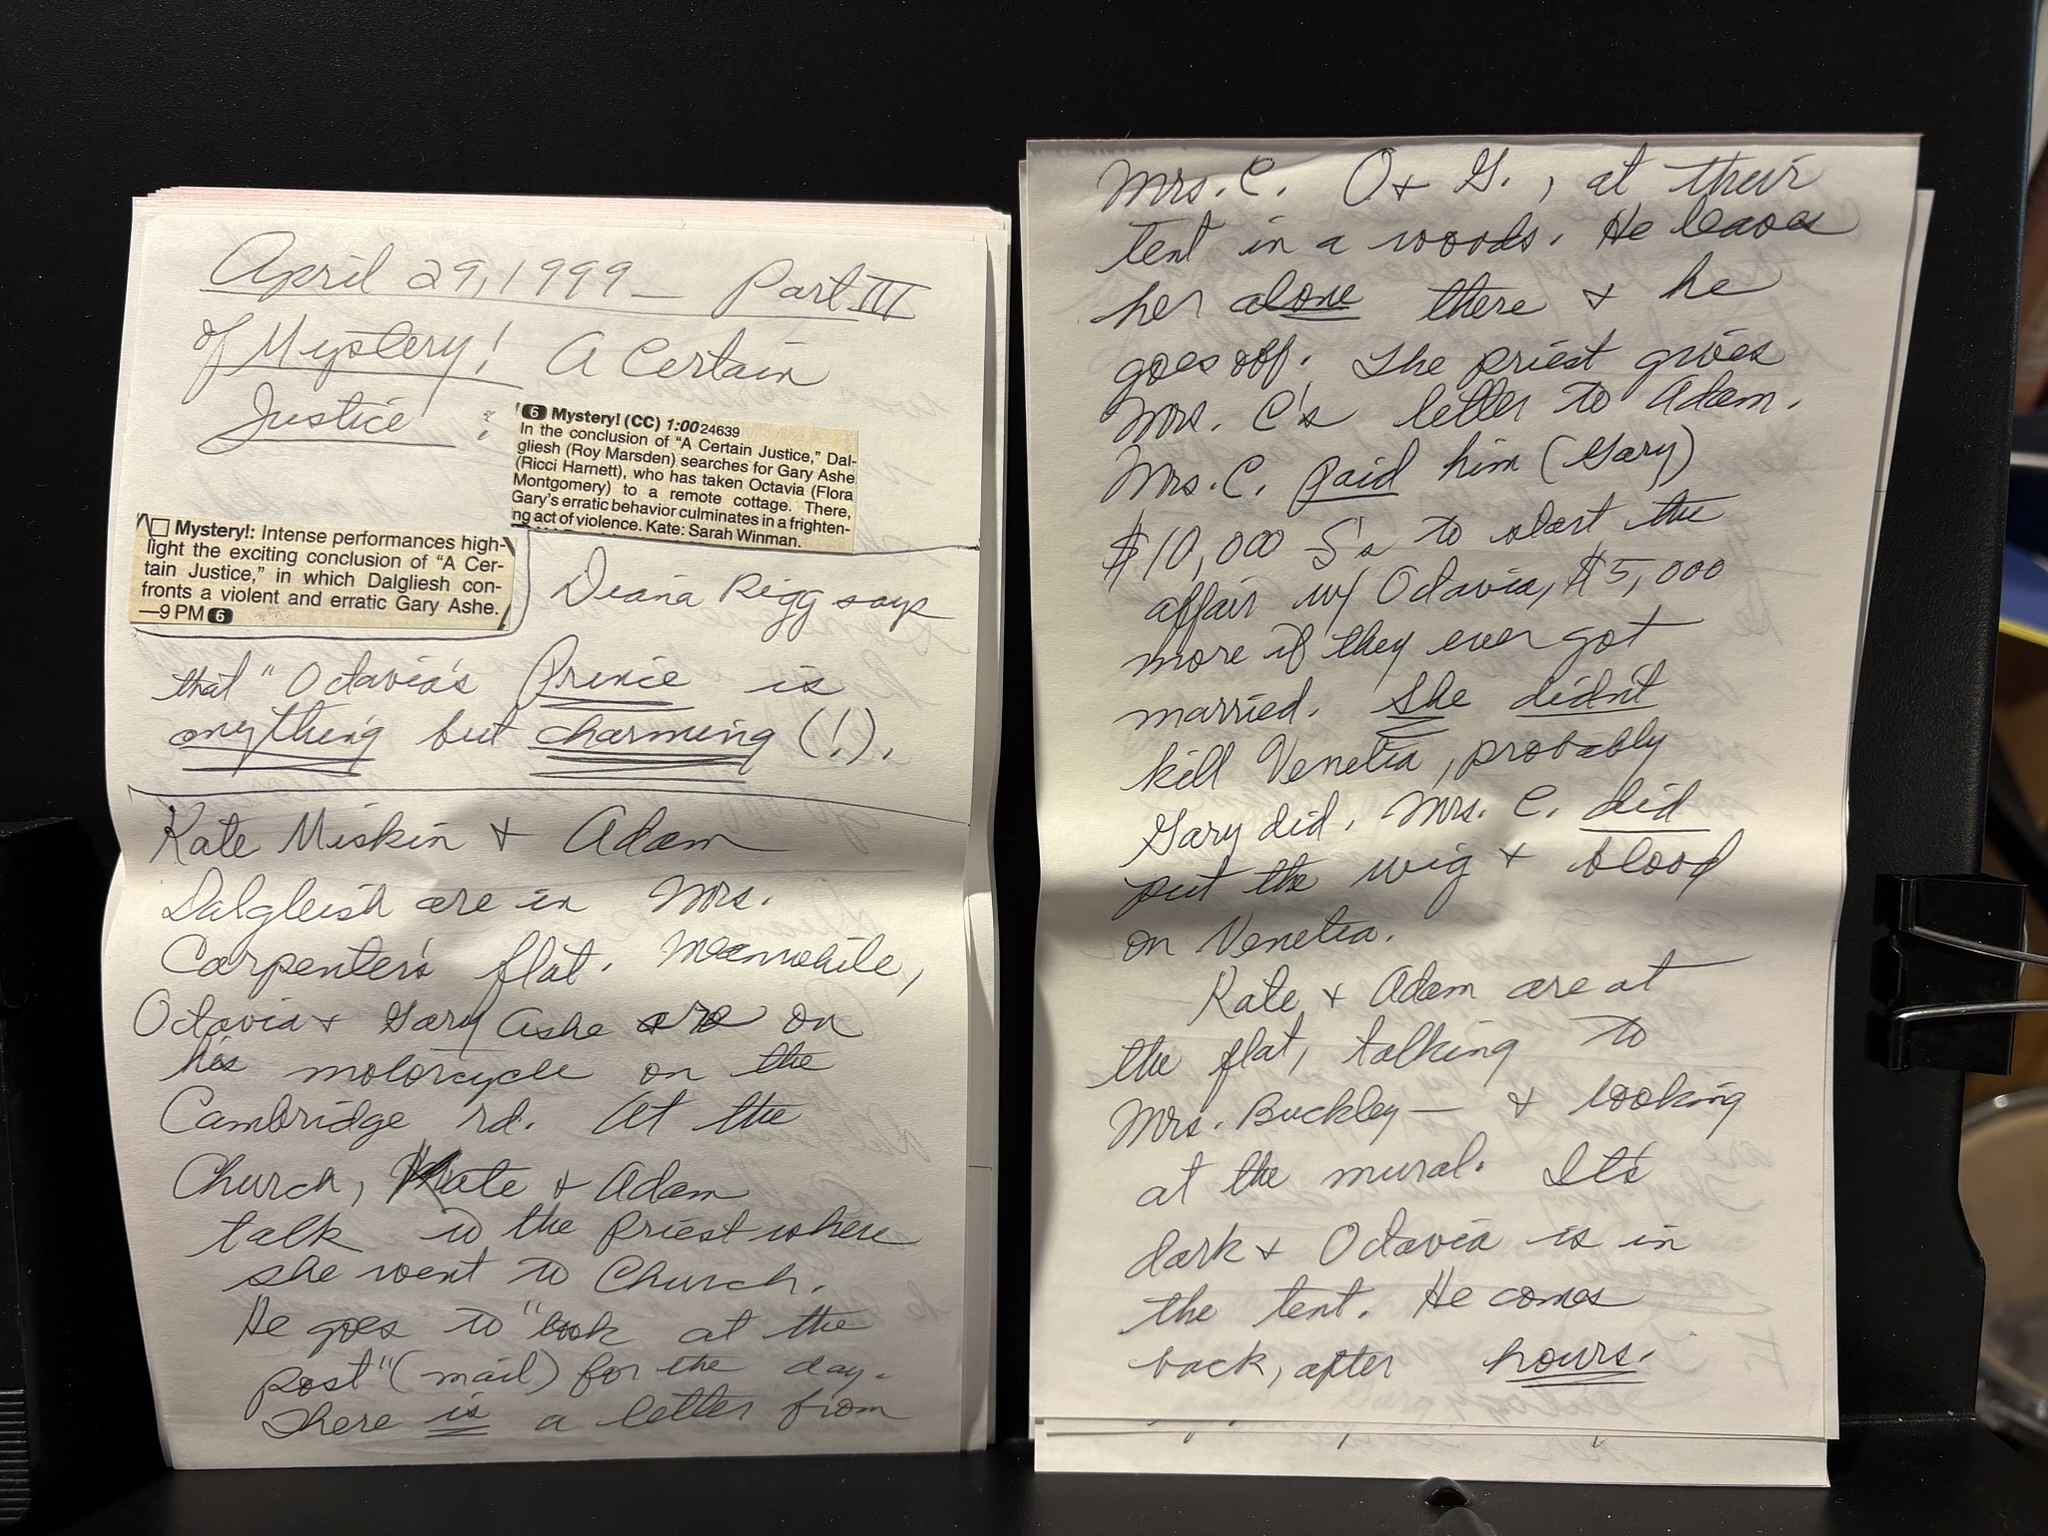 April 29, 1999 — Part III
of Mystery! A Certain
Justice :
6 Mystery! (CC) 1:00 24639
In the conclusion of "A Certain Justice," Dal-
gliesh (Roy Marsden) searches for Gary Ashe
(Ricci Harnett), who has taken Octavia (Flora
Montgomery) to a remote cottage. There,
Gary's erratic behavior culminates in a frighten-
ng act of violence. Kate: Sarah Winman.
Mystery!: Intense performances high-
light the exciting conclusion of "A Cer-
tain Justice," in which Dalgliesh con-
fronts a violent and erratic Gary Ashe.
—9 PM 6
Diana Rigg says
that "Octavia's Prince is
anything but charming (!).
Kate Miskin + Adam
Dalgleish are in Mrs.
Carpenter's flat. Meanwhile,
Octavia + Gary Ashe are on
his motorcycle on the
Cambridge rd. At the
Church, Kate + Adam
talk to the priest where
she went to Church.
He goes to "look at the
post" (mail) for the day.
There is a letter from
Mrs. C. O + G., at their
tent in a woods. He leaves
her alone there + he
goes off. The priest gives
Mrs. C's letter to Adam.
Mrs. C. paid him (Gary)
$10,000 S's to start the
affair w/ Octavia, $5,000
more if they ever got
married. She didn't
kill Venetia, probably
Gary did. Mrs. C. did
put the wig + blood
on Venetia.
Kate + Adam are at
the flat, talking to
Mrs. Buckley — + looking
at the mural. It's
dark + Octavia is in
the tent. He comes
back, after hours.